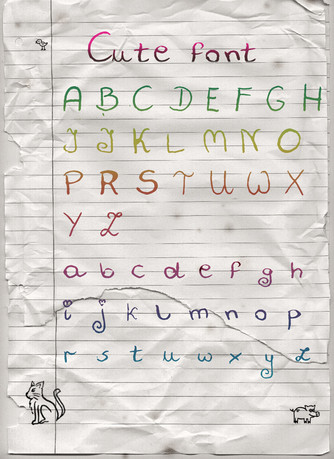 Cute font
A B C D E F G H
I J K L M N O
P R S T U W X
Y Z
a b c d e f g h
i j k l m n o p
r s t u w x y z